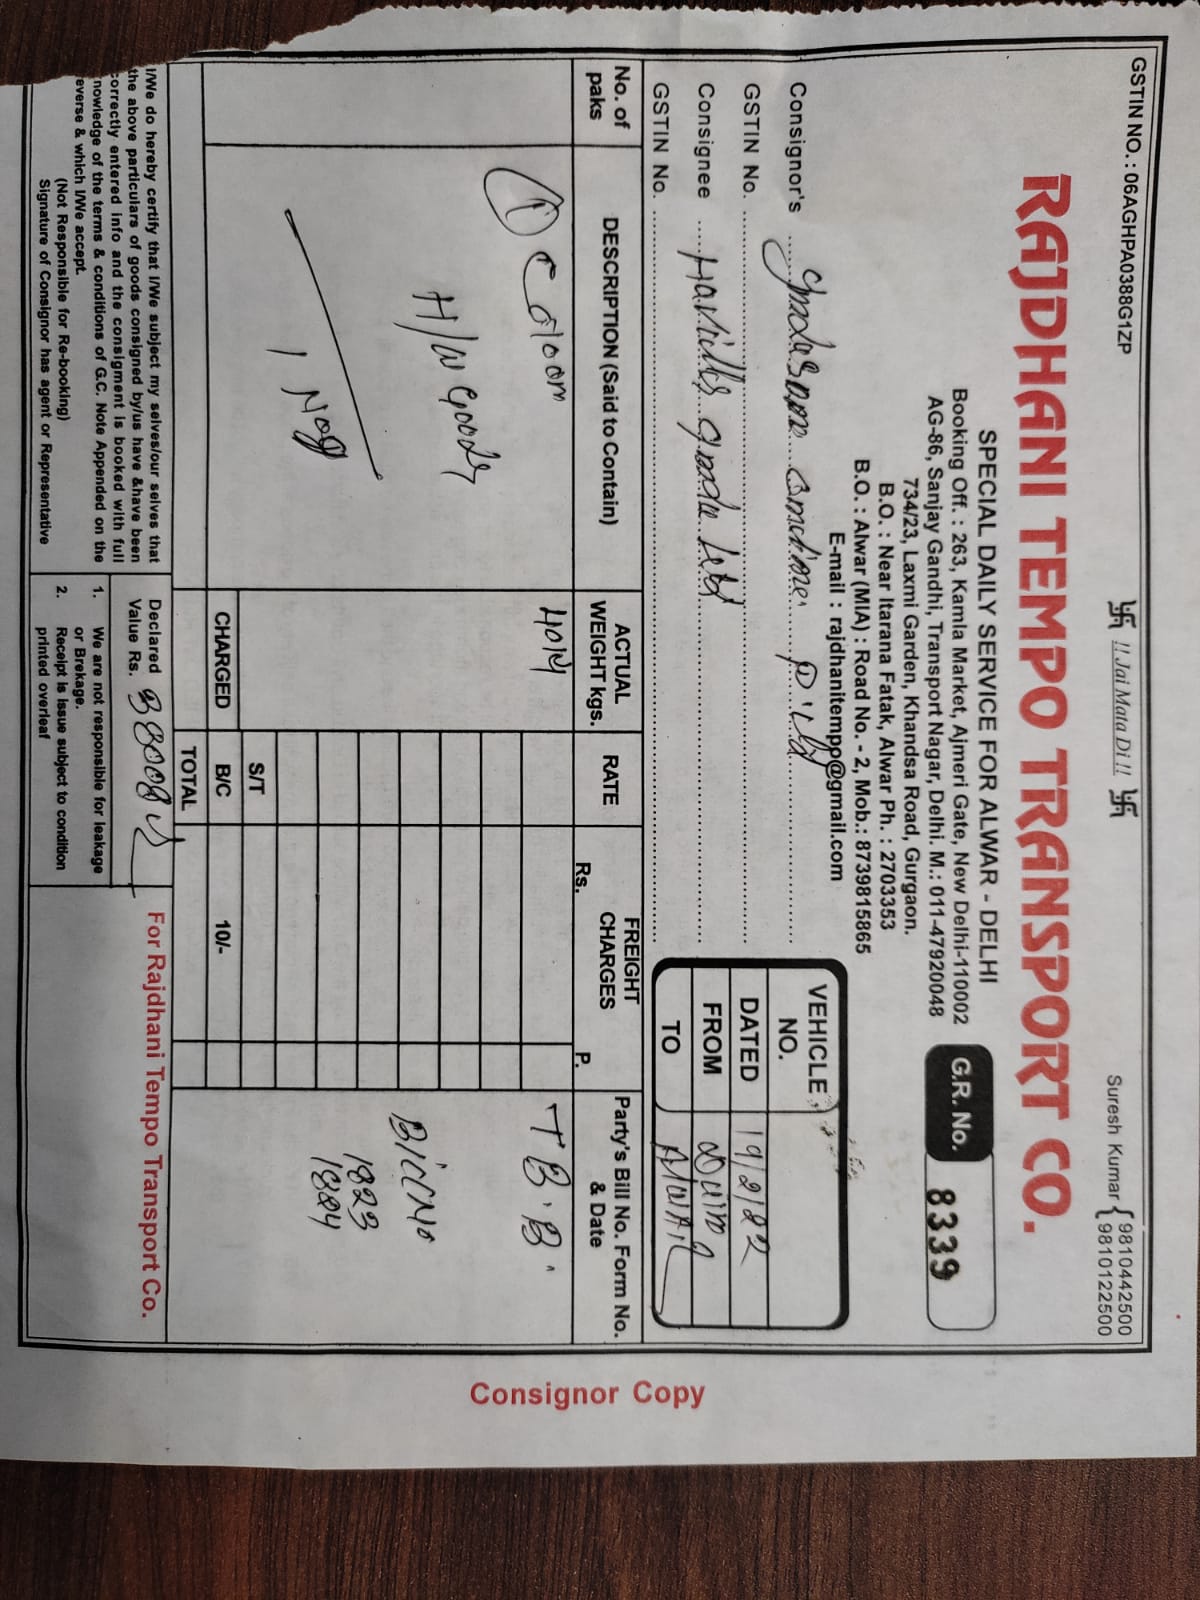 GSTIN NO. : 06AGHPA0388G1ZP
卐 !! Jai Mata Di !! 卐
Suresh Kumar { 9810442500
9810122500
RAJDHANI TEMPO TRANSPORT CO.
SPECIAL DAILY SERVICE FOR ALWAR - DELHI
Booking Off. : 263, Kamla Market, Ajmeri Gate, New Delhi-110002
AG-86, Sanjay Gandhi, Transport Nagar, Delhi. M.: 011-47920048
734/23, Laxmi Garden, Khandsa Road, Gurgaon.
B.O. : Near Itarana Fatak, Alwar Ph. : 2703353
B.O. : Alwar (MIA) : Road No. - 2, Mob.: 8739815865
E-mail : rajdhanitempo@gmail.com
G.R. No. 8339
Consignor's
GSTIN No.
Consignee Havells
GSTIN No.
VEHICLE NO.
DATED 19/2/22
FROM
TO Alwar
No. of paks
DESCRIPTION (Said to Contain)
ACTUAL WEIGHT kgs.
RATE
FREIGHT CHARGES
Rs. P.
Party's Bill No. Form No. & Date
①
H/W Goods
1 Nog
T.B.B.
Bill No
1823
1824
S/T
CHARGED B/C 10/-
TOTAL
I/We do hereby certify that I/We subject my selves/our selves that
the above particulars of goods consigned by/us have &have been
correctly entered info and the consigment is booked with full
nowledge of the terms & conditions of G.C. Note Appended on the
everse & which I/We accept.
(Not Responsible for Re-booking)
Signature of Consignor has agent or Representative
Declared
Value Rs.
1. We are not responsible for leakage
or Brekage.
2. Receipt is issue subject to condition
printed overleaf
For Rajdhani Tempo Transport Co.
Consignor Copy